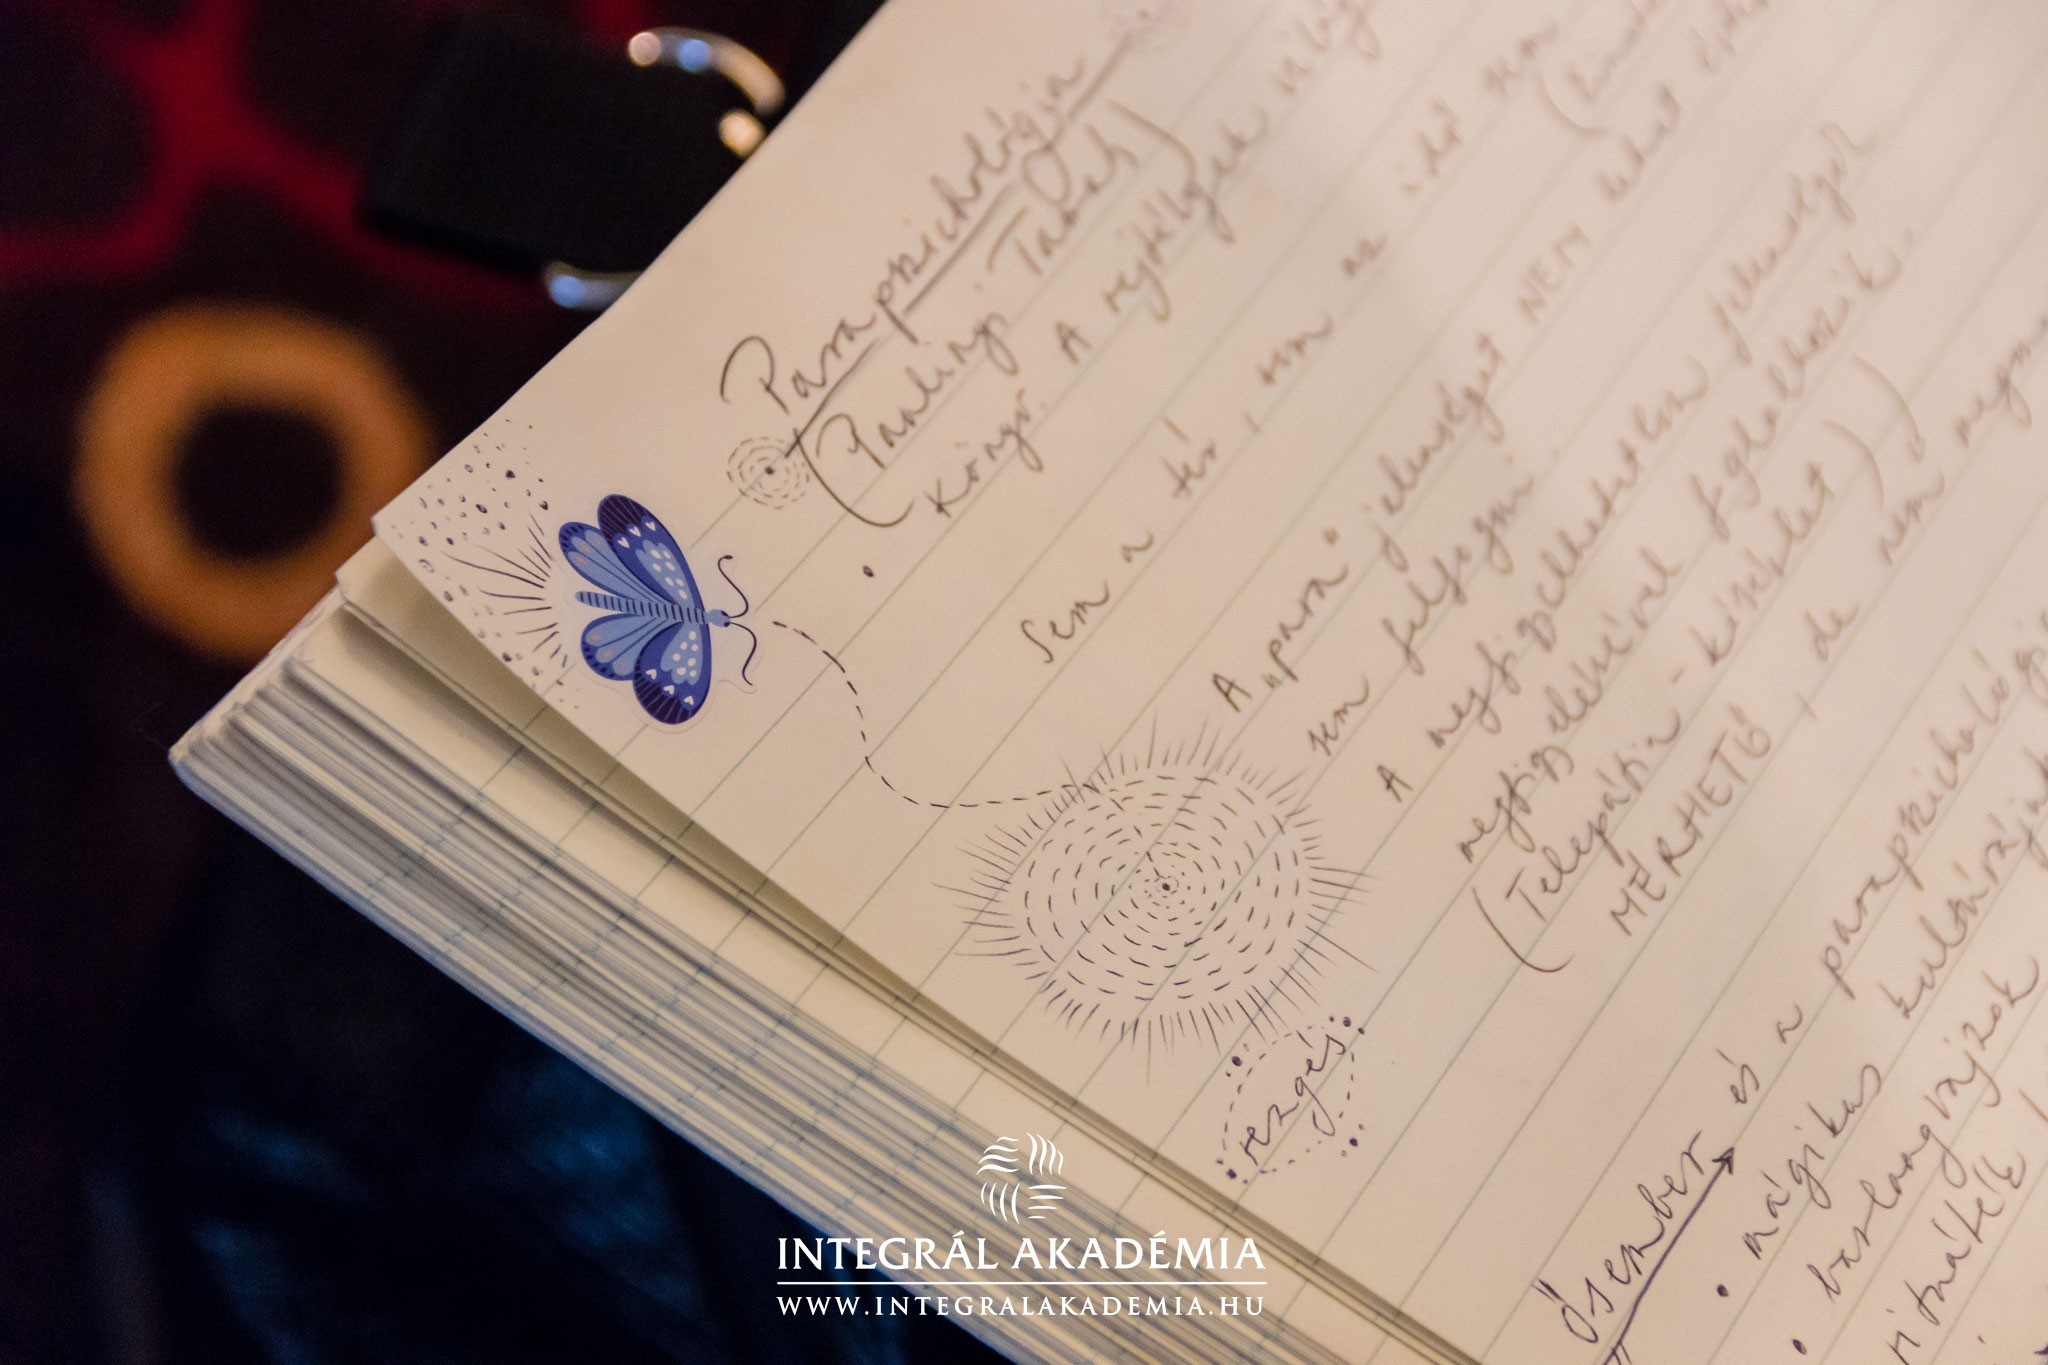 Parapszichológia
(Paulinyi Tamás)
• Könyv: A rejtélyek
Sem a tér, sem az idő sem
A „para" jelenséget NEM lehet
sem felfogni
A megfigyelhetetlen jelenségek
megfigyelésével foglalkozik.
(Telepátia - kísérlet)
MÉRHETŐ, de nem
rezgés
Ősember és a
• mágikus
• barlangrajzok
INTEGRÁL AKADÉMIA
WWW.INTEGRALAKADEMIA.HU